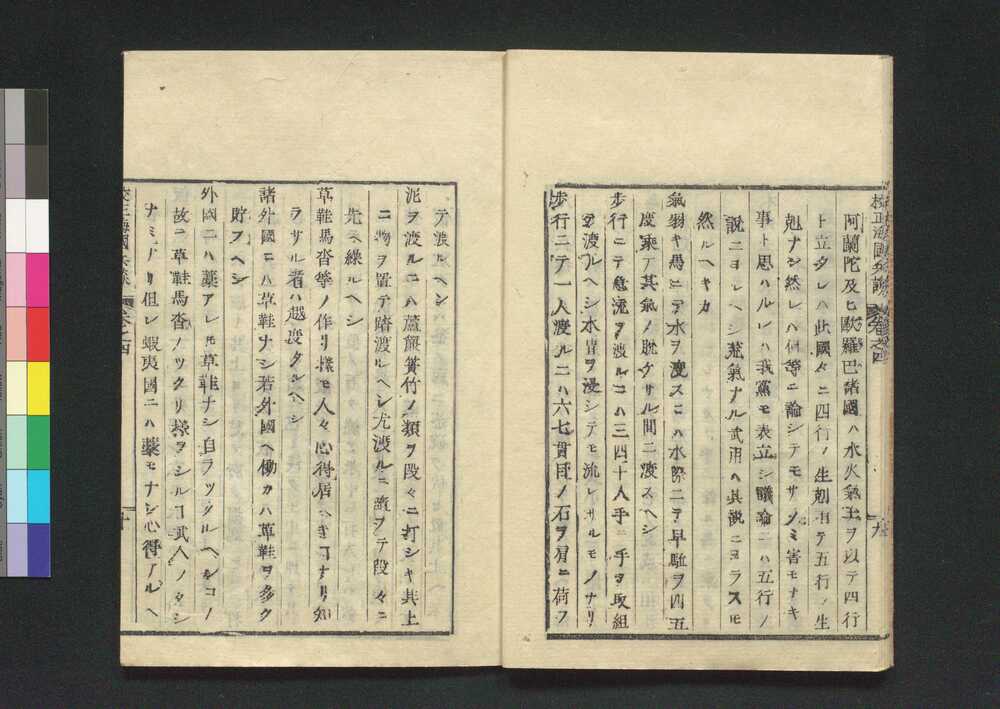 校正海國兵談 卷之四 九
阿蘭陀及ヒ歐羅巴諸國ハ水火氣土ヲ以テ四行
ト立タレハ此國々ニ四行ノ生剋有テ五行ノ生
剋ナシ然レハ何等ニ論シテモサノミ害モナキ
事ト思ハルレハ我黨モ表立シ議論ニハ五行ノ
說ニヨルヘシ荒氣ナル武用ヘ其說ニヨラスモ
然ルヘキカ
氣弱キ馬ニテ水ヲ渡スニハ水際ニテ早駈ヲ四五
度乘テ其氣ノ脫ケサル間ニ渡スヘシ
步行ニテ急流ヲ渡ルコハ三四十人手ニ手ヲ取組
テ渡ルヘシ水胃ヲ浸シテモ流レサルモノナリ
步行ニテ一人渡ルニハ六七貫目ノ石ヲ肩ニ荷フ
テ渡ルヘシ
泥ヲ渡ルニハ蘆簾簀竹ノ類ヲ段々ニ打シキ其上
ニ物ヲ置テ踏渡ルヘシ尤渡ルニ隨ヲテ段々ニ
先ヘ繰ルヘシ
草鞋馬沓等ノ作リ樣モ人々心得居ヘキコナリ知
ラサル者ハ越度タルヘシ
諸外國ニハ草鞋ナシ若外國ヘ働カハ草鞋ヲ多ク
貯フヘシ
外國ニハ藁アレ𪜈草鞋ナシ自ラツクルヘシコノ
故ニ草鞋馬沓ノツクリ樣ヲシルコ武人ノタシ
ナミナリ但レ蝦夷國ニハ藁モナシ心得アルヘ
校正海國兵談 卷之四 十